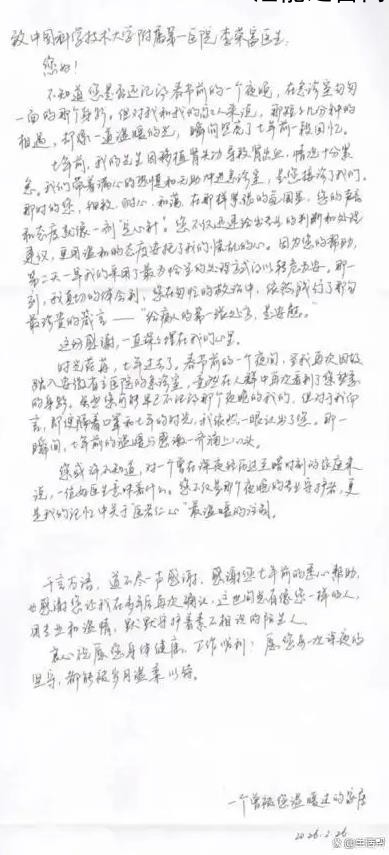 致中国科学技术大学附属第一医院 李荣富医生:
您好!
不知道您是否还记得春节前的一个夜晚,在急诊室匆匆
一面的那个身影。但对我和我的家人来说,那短短几分钟的
相遇,却像一道温暖的光,瞬间照亮了七年前一段回忆。
七年前,我的先生因移植肾失功导致胃出血,情况十分紧
急。我们带着满心的恐惧和无助冲进急诊室,是您接诊了我们。
那时的您,细致、耐心、和蔼,在那样紧张的氛围里,您的声音
和态度就像一剂“定心针”。您不仅迅速给出专业的判断和处理
建议,更用温和的态度安抚了我们慌乱的心。因为您的帮助,
第二天一早我们采用了最为恰当的处理方式得以转危为安。那一
刻,我真切的体会到,您在匆忙的救治中,依然践行了那句
最珍贵的箴言——“给病人的第一张处方,是安慰。”
这份感谢,一直深深埋在我的心里。
时光荏苒,七年过去了。春节前的一个夜间,当我再次因故
踏入安徽省立医院的急诊室,竟然在人群中再次看到了您熟悉
的身影。虽然您可能早已不记得那个夜晚的我们,但对于我而
言,即便隔着口罩和七年的时光,我依然一眼认出了您。那一
瞬间,七年前的温暖与感激一齐涌上心头。
您或许不知道,对一个曾在深夜经历过至暗时刻的家庭来
说,一位好医生意味着什么。您不仅是那个夜晚的专业守护者,更
是我的记忆中关于“医者仁心”最温暖的注脚。
千言万语,道不尽一声感谢。感谢您七年前的悉心帮助,
也感谢您让我在多年后再次确认,这世间总有像您一样的人,
用专业和温情,默默守护着素不相识的陌生人。
衷心祝愿您身体健康,工作顺利!愿您每一次深夜的
坚守,都能被岁月温柔以待。
一个曾被您温暖过的家属
2026.2.26